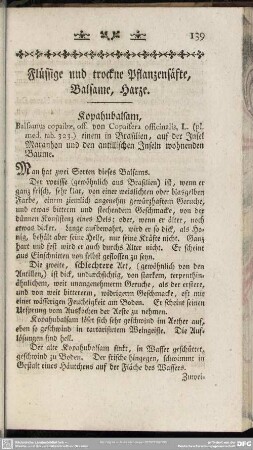 139
Flüssige und trockne Pflanzensäfte,
Balsame, Harze.
Kopahubalsam,
Balsamus copaibae, off. von Copaifera officinalis, L. (pl.
med. tab. 323.) einem in Brasilien, auf der Insel
Maranhon und den antillischen Inseln wohnenden
Baume.
Man hat zwei Sorten dieses Balsams.
Der weisse (gewöhnlich aus Brasilien) ist, wenn er
ganz frisch, sehr klar, von einer weißlichen oder blasgelben
Farbe, einem ziemlich angenehm gewürzhaftem Geruche,
und etwas bitterm und stechendem Geschmacke, von der
dünnen Konsistenz eines Oels; oder, wenn er älter, noch
etwas dicker. Lange aufbewahrt, wird er so dick, als Ho-
nig, behält aber seine Helle, nur seine Kräfte nicht. Ganz
hart und fest wird er auch durchs Alter nicht. Er scheint
aus Einschnitten von selbst geflossen zu seyn.
Die zweite, schlechtere Art, (gewöhnlich von den
Antillen) ist dick, undurchsichtig, von starkem, terpenthin-
ähnlichem, weit unangenehmerm Geruche, als der erstere,
und von weit bitterem, widrigerm Geschmacke, oft mit
einer wäßrigen Feuchtigkeit am Boden. Er scheint seinen
Ursprung vom Auskochen der Aeste zu nehmen.
Kopahubalsam löset sich sehr geschwind im Aether auf,
eben so geschwind in tartarisirtem Weingeiste. Die Auf-
lösungen sind hell.
Der alte Kopahubalsam sinkt, in Wasser geschüttet,
geschwind zu Boden. Der frische hingegen, schwimmt in
Gestalt eines Häutchens auf der Fläche des Wassers.
Zuwei-